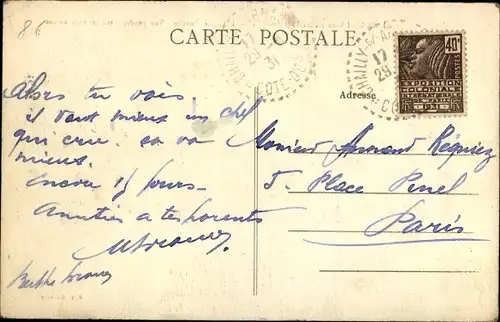 86
CARTE POSTALE
17
29
31
CÔTE-D'OR
17
29
40c
POSTES
EXPOSITION
COLONIALE
INTERNATIONALE
PARIS 1931
Adresse
Alors tu vois
il vaut mieux un chef
qui crie. ça va
mieux.
encore 15 jours -
Amitiés à tes parents
Monsieur Armand
5. Place Pinel
Paris
Berthe